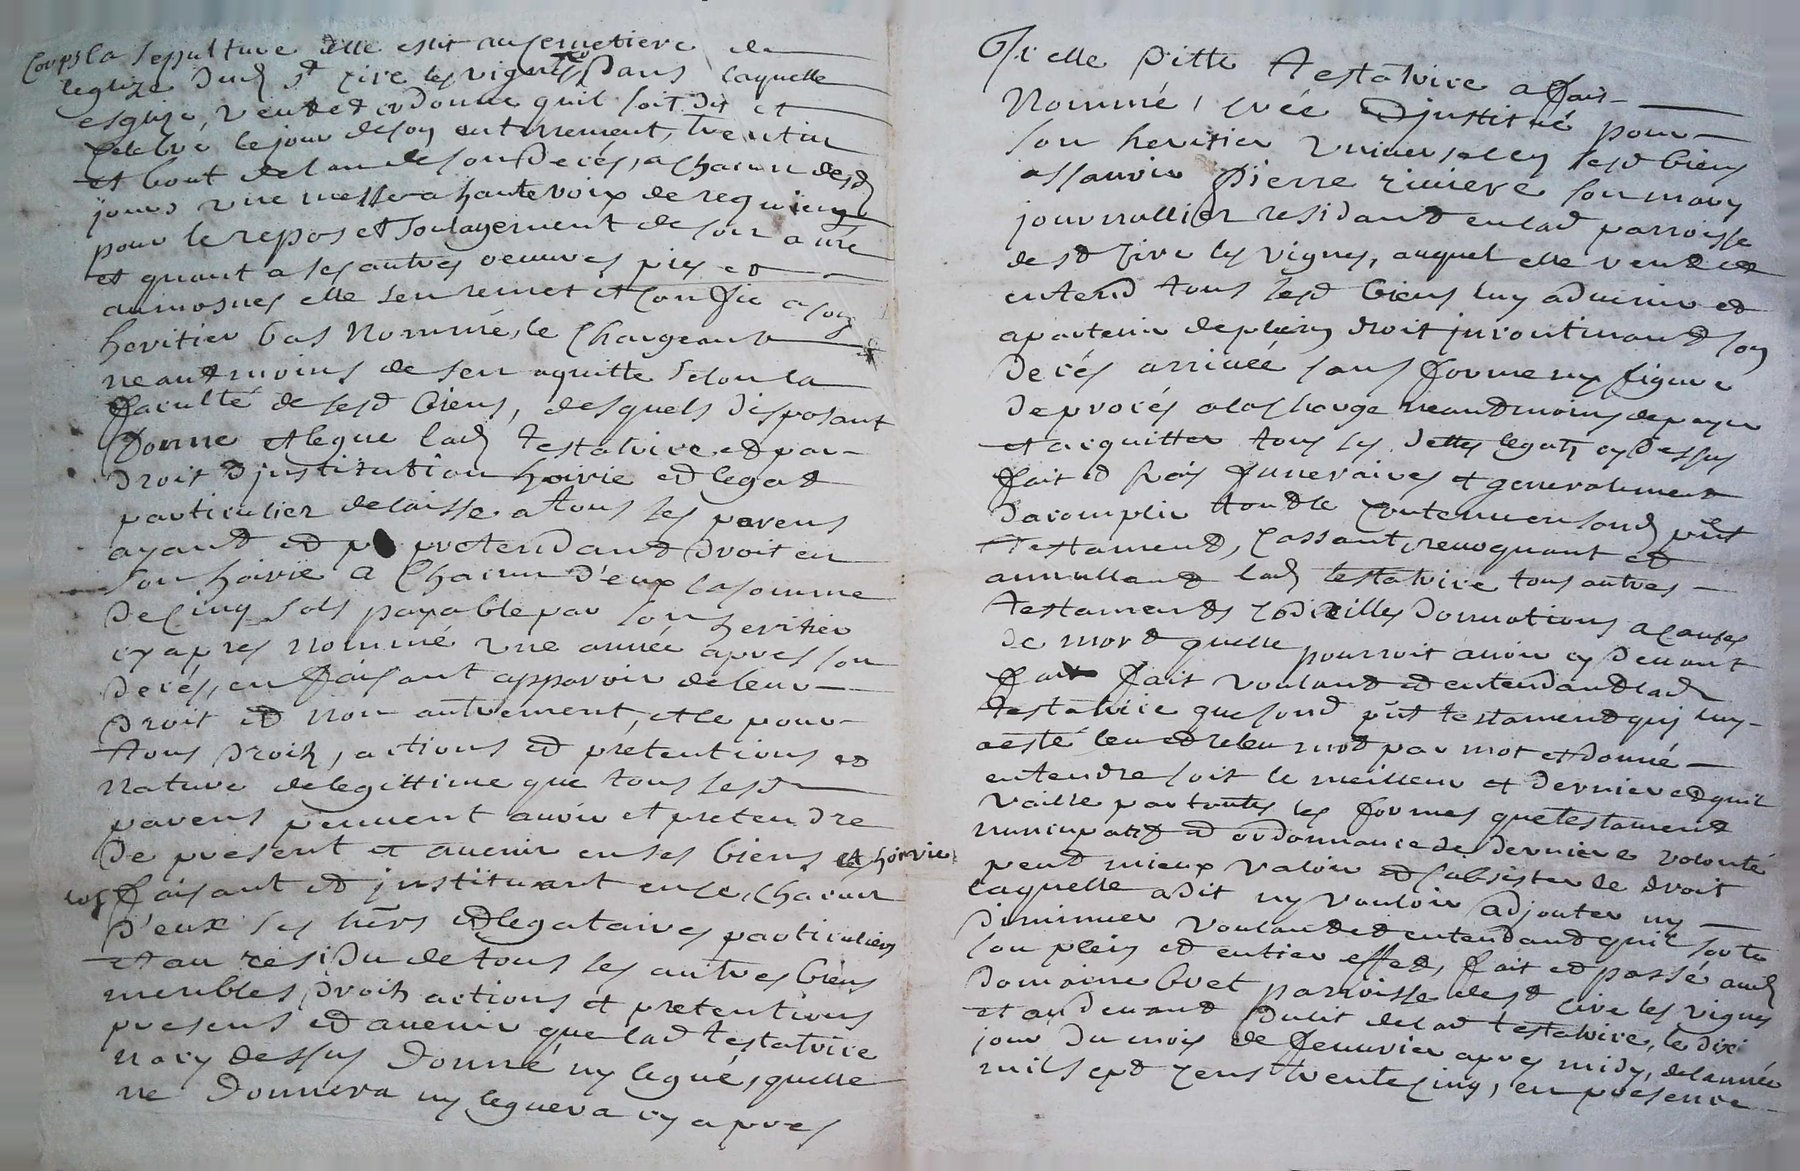 Corps la sepulture elle eslit au semetiere de
leglize dud st cire les vignes, Dans laquelle
esglize, veut et ordonne quil soit dit et
celebré le jour deson enterrement, trentin
et bout delan de son Decés, a chacun desd
jours une messe a haute voix de requiem
pour le repos et soulagement de son ame
et quant a ses autres oeuvres pies et
aumosnes elle senremet et confie a son
heritier bas Nommé, le chargeant
neantmoins de sen aquitte selon la
faculté de sesd biens, desquels disposant
Donne et legue lad testatrice et par
Droit djnstitution hoirie et legat
particulier delaisse a tous ses parens
ayant et pretendant droit en
son hoirie a chacun d'eux la somme
De cinq sols payable par son heritier
cy apres nommé une année apres son
Decés, en faisant apparoir de leur
Droit et non autrement, et ce pour
tous droits, actions et prétentions et
nature delegittime que tous sesd
parens peuvent avoir et pretendre
De present et avenir en ses biens et hoirie
les faisant et jnstituant en ce, chacun
D'eux ses hers et legataires particuliers
et au residu de tous ses autres biens
meubles, Droits actions et pretentions
presens et avenir que lad testatrice
na cy dessus donné ny legué, quelle
ne donnera ny leguera cy apres
Icelle Ditte testatrice a fait
Nommé, créé et jnstitué pour
son heritier universel en sesd biens
assavoir Pierre riviere son mary
journallier residant en lad parroisse
de st Cire les vignes, auquel elle veut et
entend tous sesd biens luy advenir et
apartenir de plein droit jncontinant son
Decés arrivée sans forme ny figure
De procés a la charge neantmoins de payer
et acquitter tous ses dettes legats cy dessus
fait et frais funeraires et generalement
Dacomplir tout le contenu en sond pñt
testament, cassant, revoquant et
annullant lad testatrice tous autres
testaments codicilles donnations a causes
de mort quelle pourroit avoir cy devant
fait voulant et entendant lad
testatrice que sond pñt testament qui luy
a esté leu et releu mot par mot et donné
entendre soit le meilleur et dernier et quil
vaille par toutes les formes que testament
nuncupatif et ordonnance de derniere volonté
peut mieux valoir et subsister de droit
laquelle a dit ny vouloir adjouter ny
diminuer voulant et entendant quil sorte
son plein et entier effet, fait et passé aud
Domaine buet parroisse de st Cire les vignes
et au devant du lit de lad testatrice, le dix
jour du mois de fevvrier apres midy, de lannée
mil sept cens trente cinq, en presence